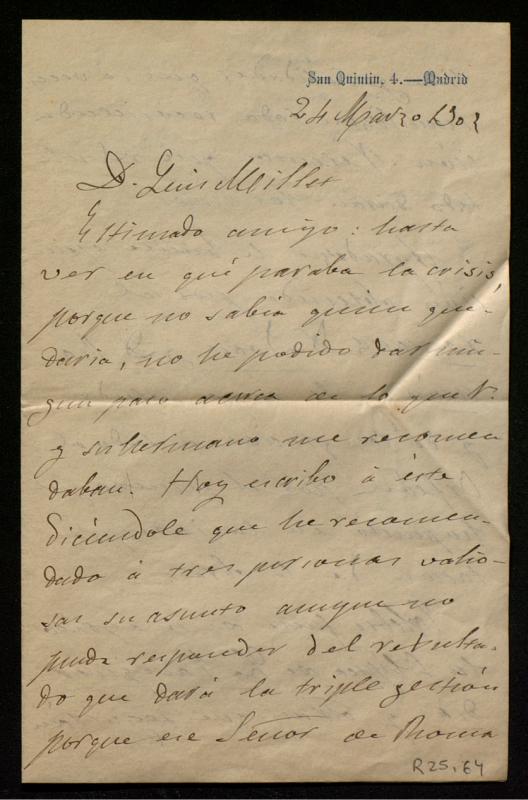 San Quintin, 4.—Madrid
24 Marzo 1303
D. Luis Millet
Estimado amigo: hasta
ver en qué paraba la crisis
porque no sabia quien que-
daria, no he podido dar nin-
gun paso acerca de lo que V.
y su hermano me recomen
daban. Hoy escribo á éste
diciéndole que he recomen-
dado á tres personas valio-
sas su asunto aunque no
puedo responder del resulta-
do que dará la triple gestión
porque ese Señor de Roma
R25,64